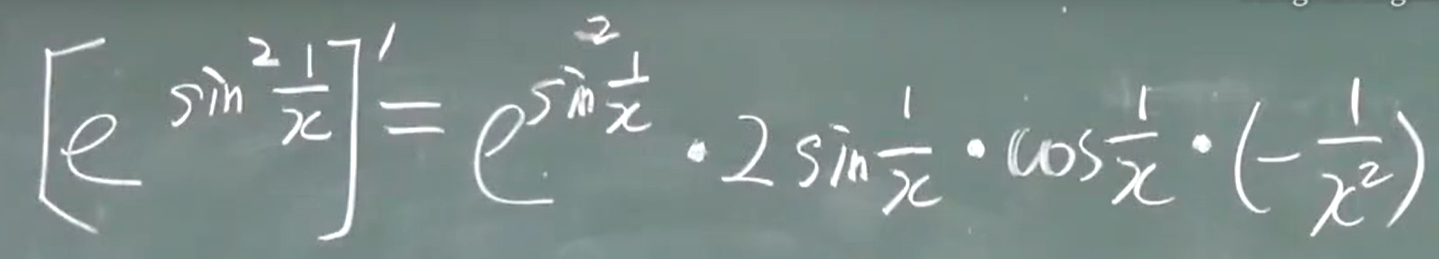 [e^{sin^2 \frac{1}{x}}]' = e^{sin^2 \frac{1}{x}} · 2 sin \frac{1}{x} · cos \frac{1}{x} · (-\frac{1}{x^2})